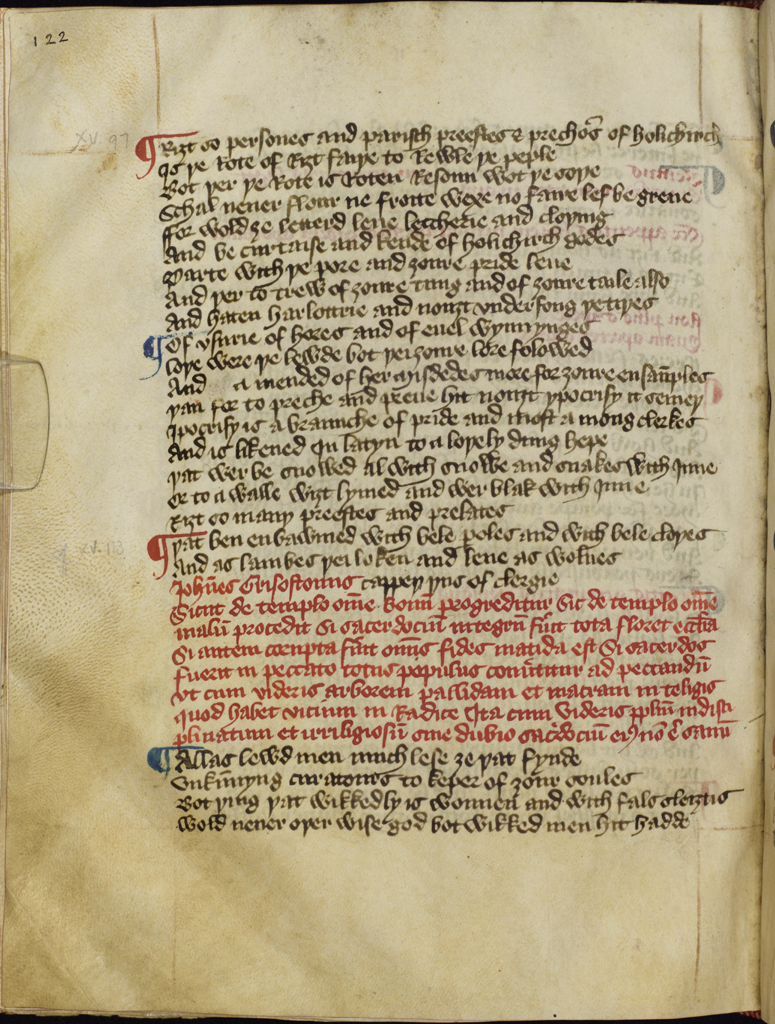 122
XV. 97
Riȝt so persones and parisch preestes & prechoʳs of holichirch
Is þe rote of riȝt faiþe to rewle þe peple
Bot þer þe rote is roten resoun wot þe soþe
Schal neuer flour ne fruite wexe no faire lef be grene
For wold ȝe lettred leue leccherie and cloþing
And be curtaise and kende of holichirch godes
Parte with þe pore and ȝoure pride leue
And þer to trew of ȝoure tung and of ȝoure taile also
And haten harlottrie and nouȝt vnderfong þe tiþes
Of vsurie of hores and of euel wynnynges
Loþe were þe lewde bot þei ȝoure lore folowed
And a mended of her mysdedes more for ȝoure ensaūples
Þan for to preche and preue hit nouȝt ypocrisy it semeþ
Ipocrisy is a braunche of pride and most a mong clerkes
And is likened in latyn to a loþely dung hepe
Þat wer be snowed al with snowe and snakes with jnne
Or to a walle wiȝt lymed and wer blak with jnne
Riȝt so many preestes and prelates
XV. 113
Þat ben enbawmed with bele poles and with bele cloþes
And as lambes þei loken and leue as wolues
Joh̄nes Crisostomus carpeþ þus of clergie
Sicut de templo om̄e bonū progreditur Sic de templo om̄e
malū procedit Si sacerdociū integrū fūit tota floret ecc̄lia
Si autem corupta fūit om̄is fides matida est Si sacerdos
fuerit in peccato totus populus conūtitur ad peccandū
Vt cum videris arborem pallidam et macram inteligis
quod habet vicium in radice Ita cum videris pplūm indisci
plinatum et irriligiosū sine dubio sac̄dociū eiꝰ nō ē sanū
Allas lewd men much lese ȝe þat fynde
Vnkūnyng curatours to keper of ȝour soules
Bot þing þat wikkedly is wonnen and with fals sleiȝtis
Wold neuer oþer wise god bot wikked men hit hadde